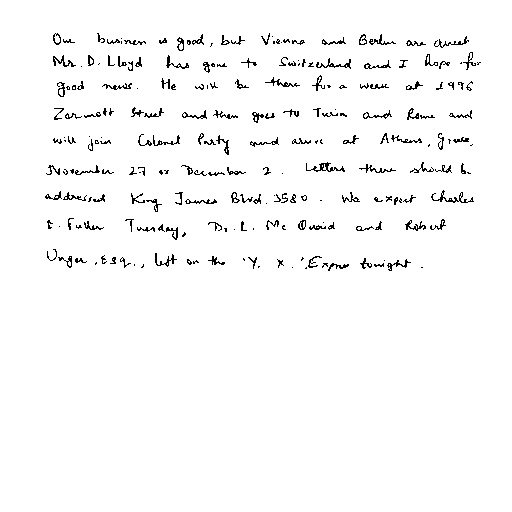 Our business is good, but Vienna and Berlin are quiet
Mr. D. Lloyd has gone to Switzerland and I hope for
good news. He will be there for a week at 1996
Zermott Street and then goes to Turin and Rome and
will join Colonel Parry and arrive at Athens, Greece,
November 27 or December 2. Letters there should be
addressed King James Blvd. 3580. We expect Charles
E. Fuller Tuesday, Dr. L. Mc Quaid and Robert
Unger, Esq., left on the 'Y. X.', Express tonight.